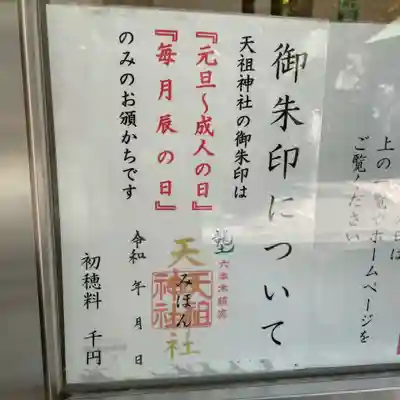 上の
ホームページを
ご覧ください
御朱印について
天祖神社の御朱印は
『元旦～成人の日』
『毎月辰の日』
のみのお頒かちです
六本木鎮座
天祖神社
みほん
天祖神社
令和 年 月 日
初穂料 千円